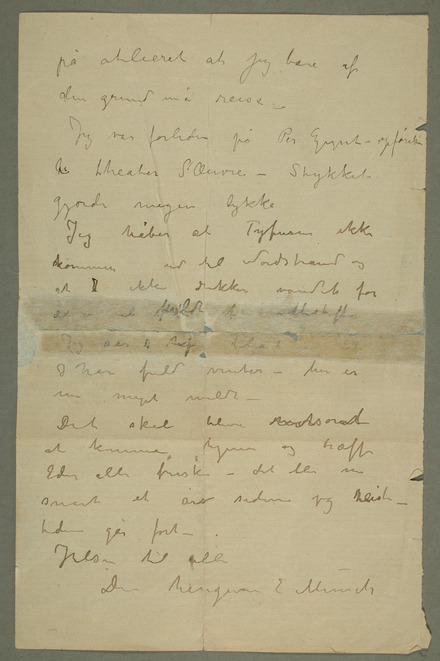 på atelieret at jeg bare af
den grund må reise –
Jeg var forleden på Per Gynt – opført
theater L'Œuvre – Stykket
gjorde megen lykke
Jeg håber at Tyfusen ikke
kommer ud til Nordstrand og
at I ikke drikker vandet før
Jeg ser
I har fuld vinter – her er
nu meget mildt –
Det skal blive
at komme hjem og træffe
Eder alle friske – det er nu
snart et år siden jeg reiste –
tiden går fort – .
Hilsen til alle
Din hengivne E Munch